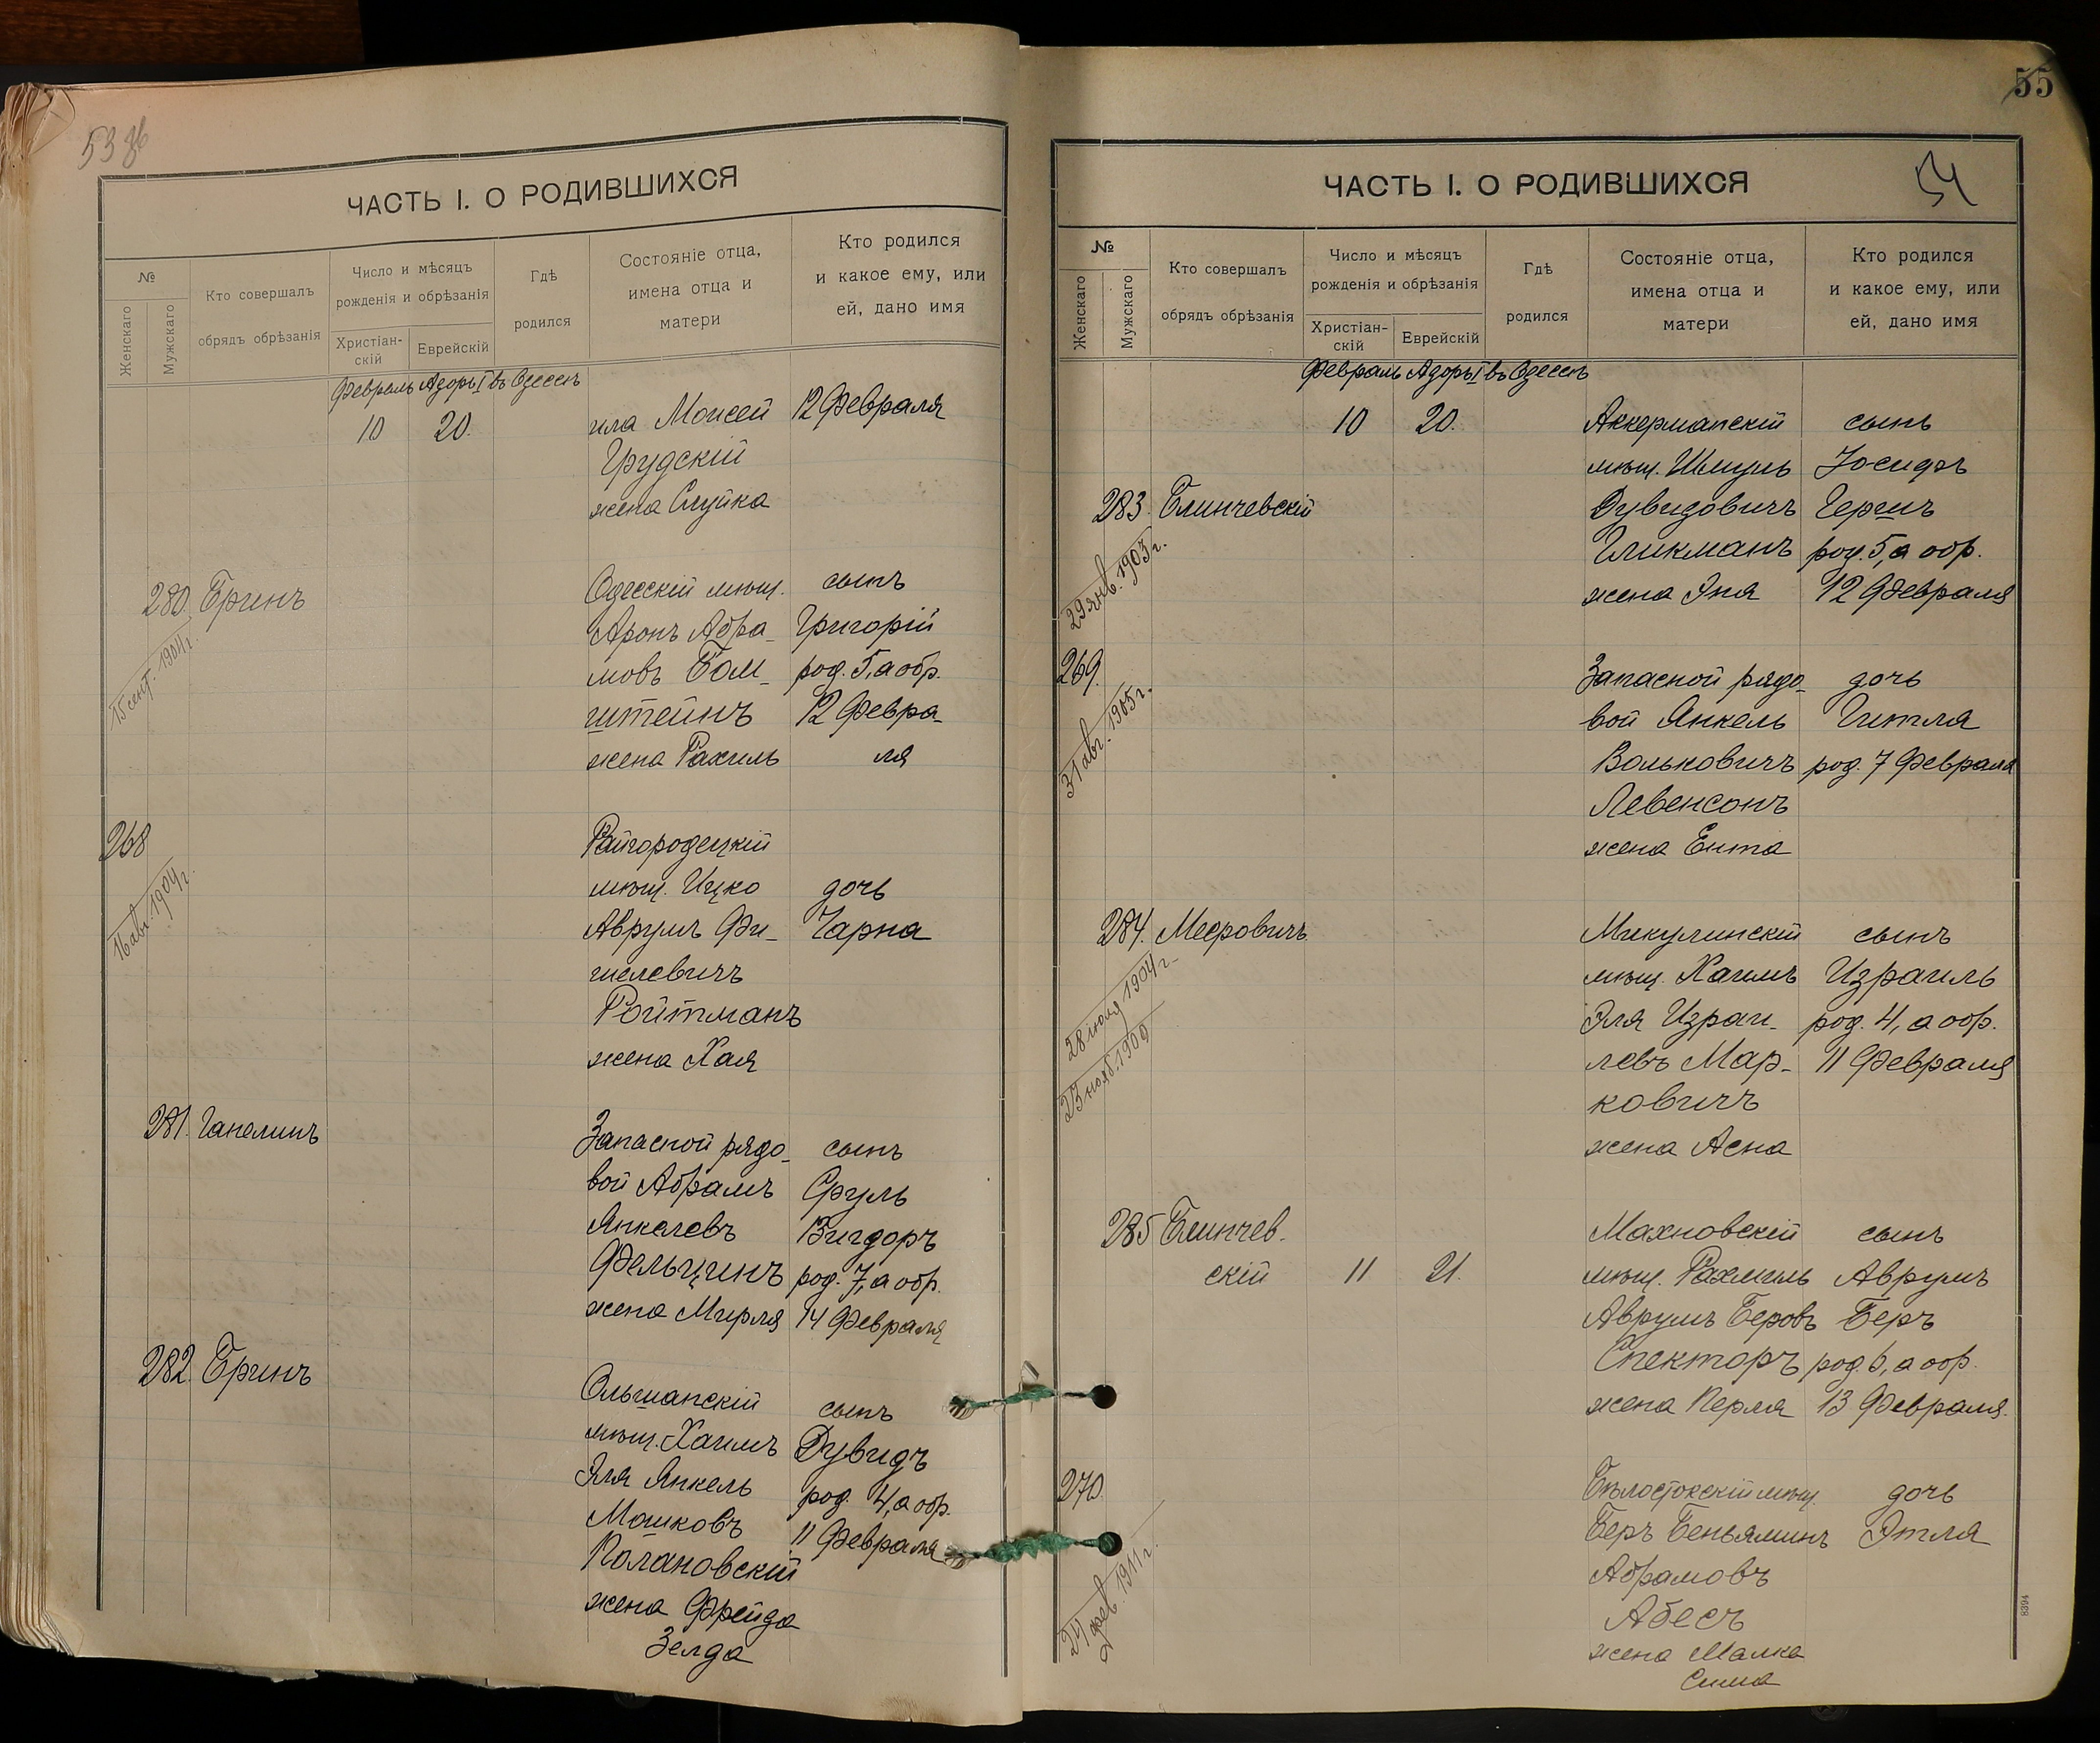 53 об
ЧАСТЬ I. О РОДИВШИХСЯ
№
Женскаго
Мужскаго
Кто совершалъ
обрядъ обрѣзанія
Число и мѣсяцъ
рожденія и обрѣзанія
Христіан-
скій
Еврейскій
Гдѣ
родился
Состояніе отца,
имена отца и
матери
Кто родился
и какое ему, или
ей, дано имя
Февраль Адоръ I въ Одессѣ
10 20. Моисей 12 Февраля
Грудскій
жена Слуйка
280. Бринъ Одесскій мѣщ. сынъ
15 сент. 1904 г. Аронъ Абра- Григорій
мовъ Гом- род. 5, а обр.
штейнъ 12 Февра-
жена Рахиль ля
268 Райгородецкій
16 авг. 1904 г. мѣщ. Ицко дочь
Аврумъ Фи- Чарна
шелевичъ
Ройтманъ
жена Хая
281. Ганелинъ Запасной рядо- сынъ
вой Абрамъ Сруль
Янкелевъ Вигдоръ
Фельцинъ род. 7, а обр.
жена Мирля 14 Февраля
282. Бринъ Ольшанскій сынъ
мѣщ. Хаимъ Дувидъ
Эля Янкель род. 4, а обр.
Мошковъ 11 Февраля
Полановскій
жена Фрейда
Зелда
55
54
ЧАСТЬ I. О РОДИВШИХСЯ
№
Женскаго
Мужскаго
Кто совершалъ
обрядъ обрѣзанія
Число и мѣсяцъ
рожденія и обрѣзанія
Христіан-
скій
Еврейскій
Гдѣ
родился
Состояніе отца,
имена отца и
матери
Кто родился
и какое ему, или
ей, дано имя
Февраль Адоръ I въ Одессѣ
10 20. Аккерманскій сынъ
мѣщ. Шмуль Іосифъ
283. Блинчевскій Дувидовичъ Гершъ
29 янв. 1903 г. Гликманъ род. 5, а обр.
жена Эня 12 Февраля
269. Запасной рядо- дочь
31 авг. 1905 г. вой Янкель Гитля
Вольковичъ род. 7 Февраля
Левенсонъ
жена Ента
284. Мееровичъ Микулинскій сынъ
28 іюля 1904 г. мѣщ. Хаимъ Израиль
23 нояб. 1909 Эля Израи- род. 4, а обр.
левъ Мар- 11 Февраля
ковичъ
жена Асна
285 Блинчев- Махновскій сынъ
скій 11 21. мѣщ. Рахмиль Аврумъ
Аврумъ Беровъ Беръ
Спекторъ род. 6, а обр.
жена Перля 13 Февраля.
270. Бѣлостокскій мѣщ. дочь
24 фев. 1911 г. Беръ Беньяминъ Этля
Абрамовъ
Абесъ
жена Малка
Сима
8394